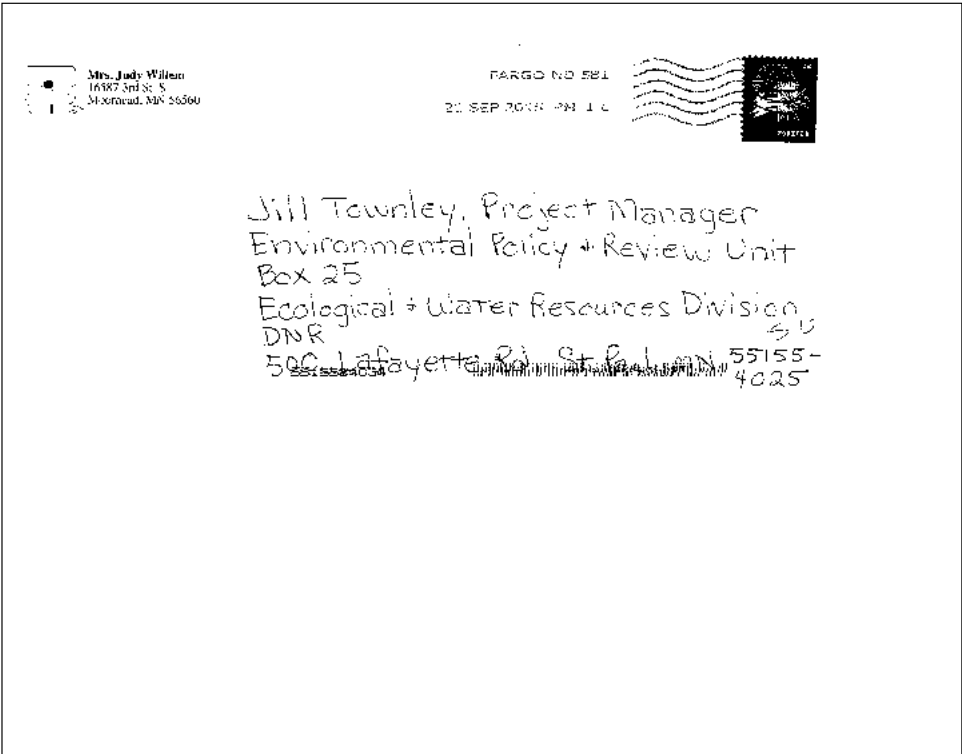 Mrs. Judy Willem
16587 3rd St. S
Moorhead, MN 56560
FARGO ND 581
SEP PM
FOREVER
Jill Townley, Project Manager
Environmental Policy + Review Unit
Box 25
Ecological + Water Resources Division
DNR
500 Lafayette Rd St. Paul, MN 55155-
4025